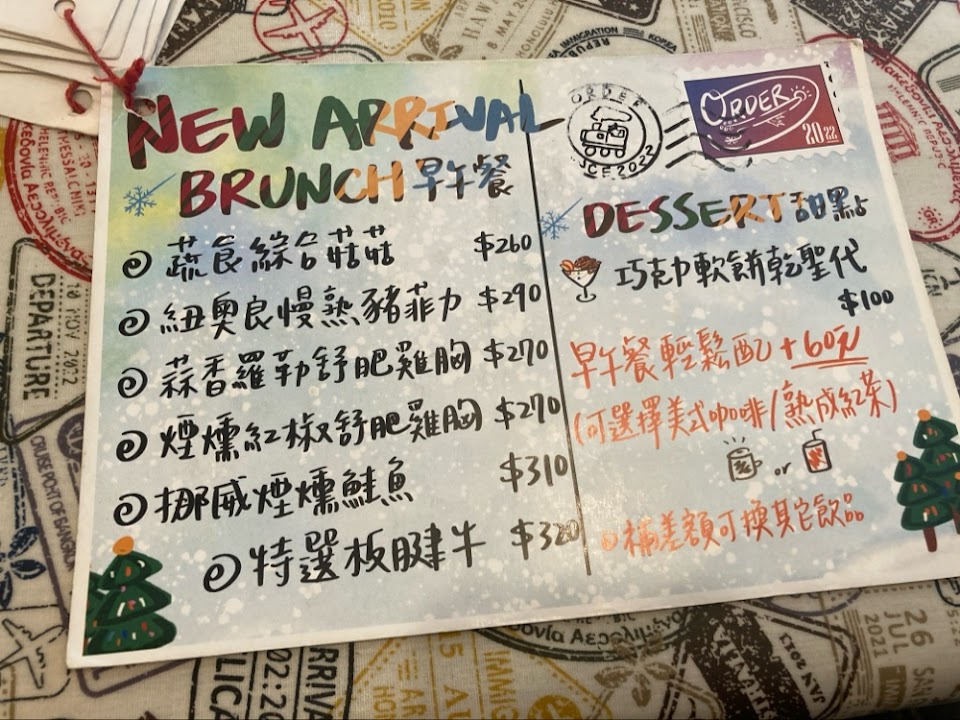 NEW ARRIVAL
BRUNCH 早午餐
蔬食綜合菇菇 $260
紐奧良慢熟豬菲力 $290
蒜香羅勒舒肥雞胸 $270
煙燻紅椒舒肥雞胸 $270
挪威煙燻鮭魚 $310
特選板腱牛 $320
ORDER
SCE 2022
ORDER
2022
DESSERT 甜點
巧克力軟餅乾聖代
$100
早午餐輕鬆配 +60元
(可選擇美式咖啡/熟成紅茶)
or
補差額可換其它飲品
DEPARTURE
10 NOV 2022
CRUISE PORT OF BANGKOK
IMMIGRATION KOREA
8 MAY
HONOLULU
26
JUL
2011
JAN 2013